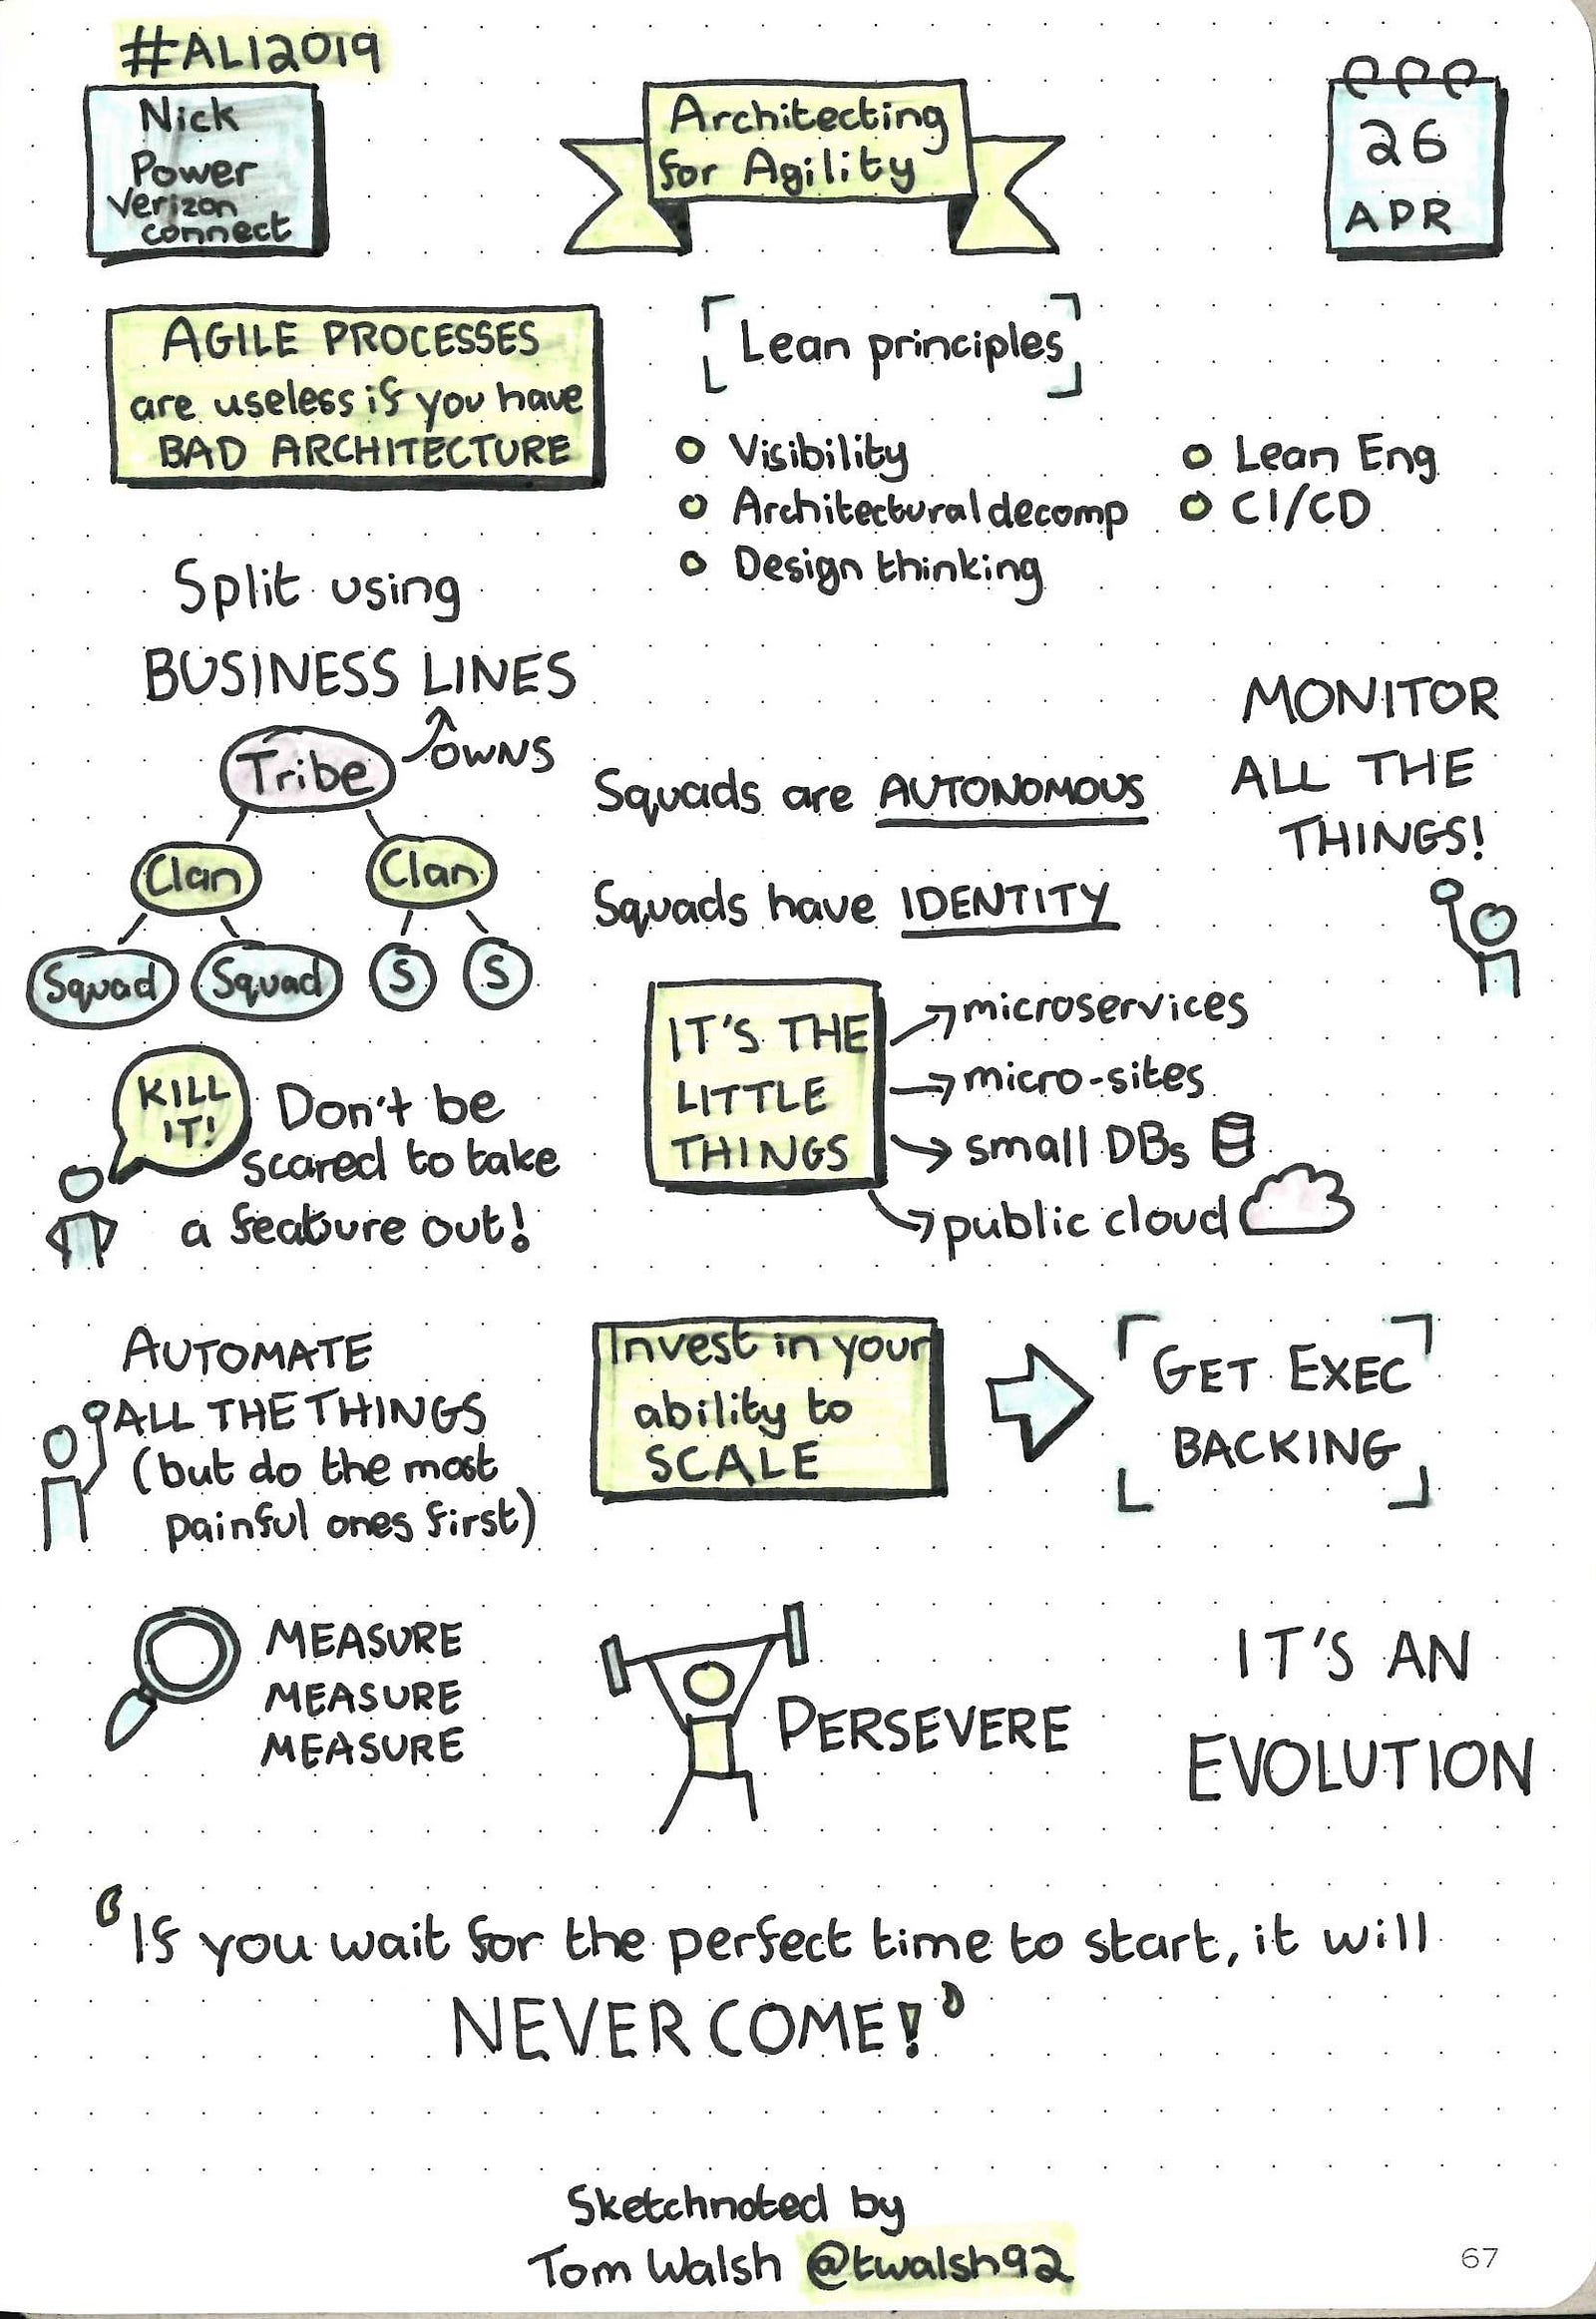 #ALI2019
Nick
Power
Verizon
connect
Architecting
for Agility
26
APR
AGILE PROCESSES
are useless if you have
BAD ARCHITECTURE
Lean principles
Visibility
Architectural decomp
Design thinking
Lean Eng
CI/CD
Split using
BUSINESS LINES
OWNS
Tribe
Clan
Clan
Squad
Squad
S
S
Squads are AUTONOMOUS
Squads have IDENTITY
MONITOR
ALL THE
THINGS!
KILL
IT!
Don't be
scared to take
a feature out!
IT'S THE
LITTLE
THINGS
microservices
micro-sites
small DBs
public cloud
AUTOMATE
ALL THE THINGS
(but do the most
painful ones first)
Invest in your
ability to
SCALE
GET EXEC
BACKING
MEASURE
MEASURE
MEASURE
PERSEVERE
IT'S AN
EVOLUTION
'If you wait for the perfect time to start, it will
NEVER COME!'
Sketchnoted by
Tom Walsh @twalsh92
67